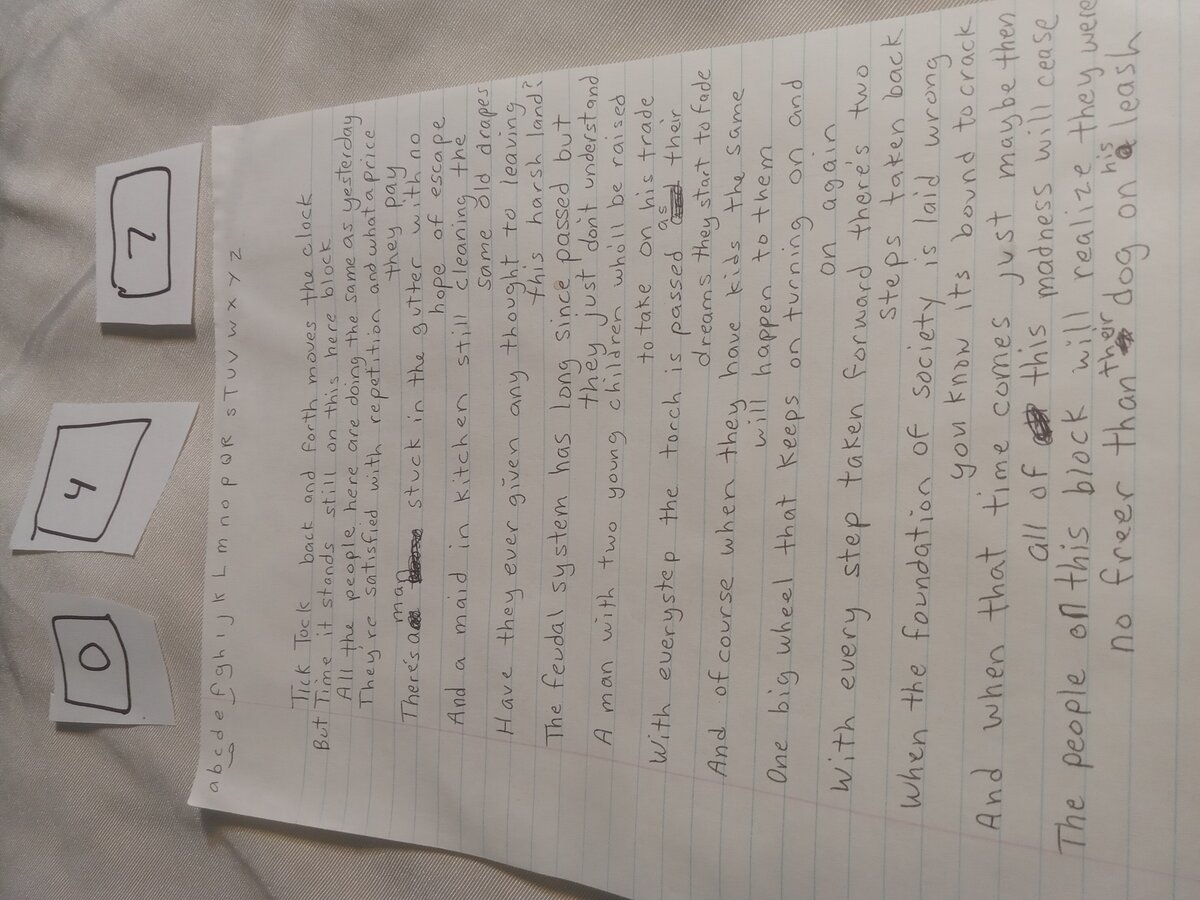 0
4
7
a b c d e f g h i j k L m n o p Q R S T U V W X Y Z
Tick Tock back and forth moves the clock
But Time it stands still on this here block
All the people here are doing the same as yesterday
They're satisfied with repetition and what a price
they pay
There's a man stuck in the gutter with no
hope of escape
And a maid in kitchen still cleaning the
same old drapes
Have they ever given any thought to leaving
this harsh land?
The feudal system has long since passed but
they just don't understand
A man with two young children who'll be raised
to take on his trade
With everystep the torch is passed as their
dreams they start to fade
And of course when they have kids the same
will happen to them
One big wheel that keeps on turning on and
on again
With every step taken forward there's two
steps taken back
When the foundation of society is laid wrong
you know its bound to crack
And when that time comes just maybe then
all of this madness will cease
The people on this block will realize they were
no freer than their dog on his leash